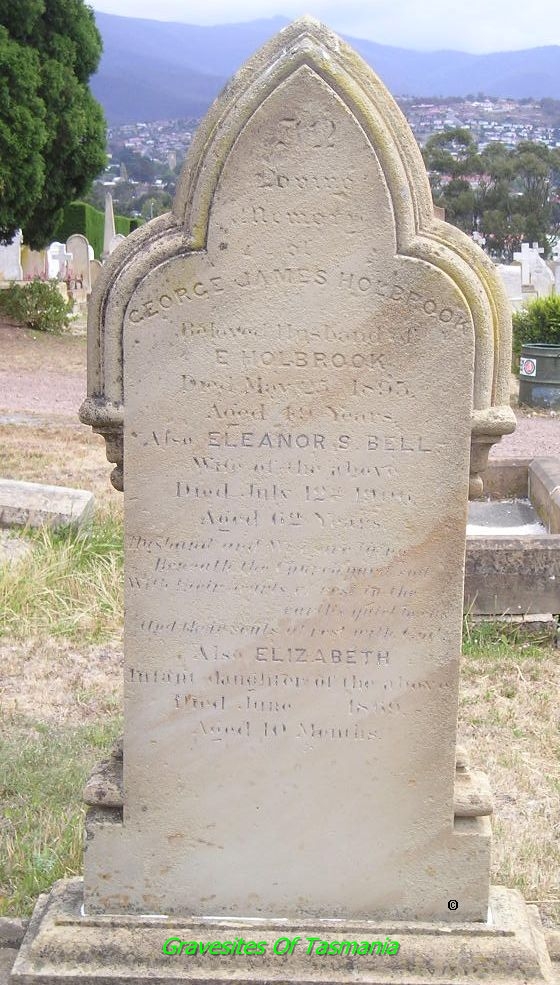 Loving
Memory
of
GEORGE JAMES HOLBROOK
Beloved Husband of
E HOLBROOK
Died May 25 1895.
Aged 49 Years.
Also ELEANOR S. BELL
Wife of the above
Died July 12th 1906
Aged 62 Years
Husband and Wife are
Beneath the
With their in the
earth's quiet
And their souls at rest with God
Also ELIZABETH
Infant daughter of the above
Died June 1869.
Aged 10 Months.
©
Gravesites Of Tasmania